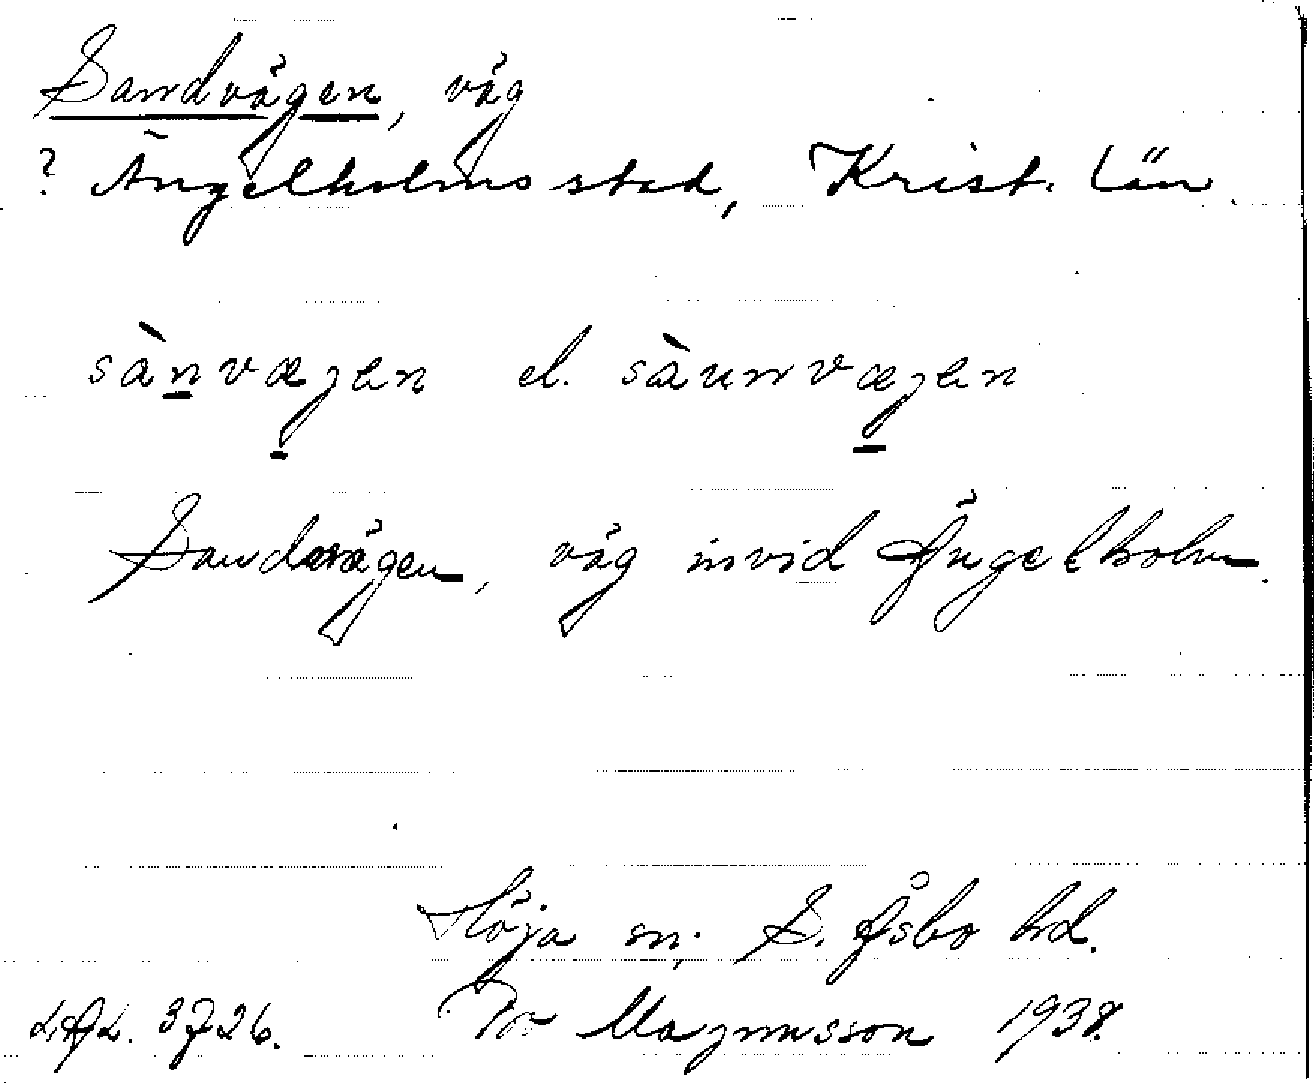 Sandvägen, väg
? Ängelholms stad, Krist. län.
sànvægen el. sàunvægen
Sandvägen, väg invid Ängelholm.
Höja sn; S. Åsbo hd.
L.A.L. 3726. Tor Magnusson 1938.